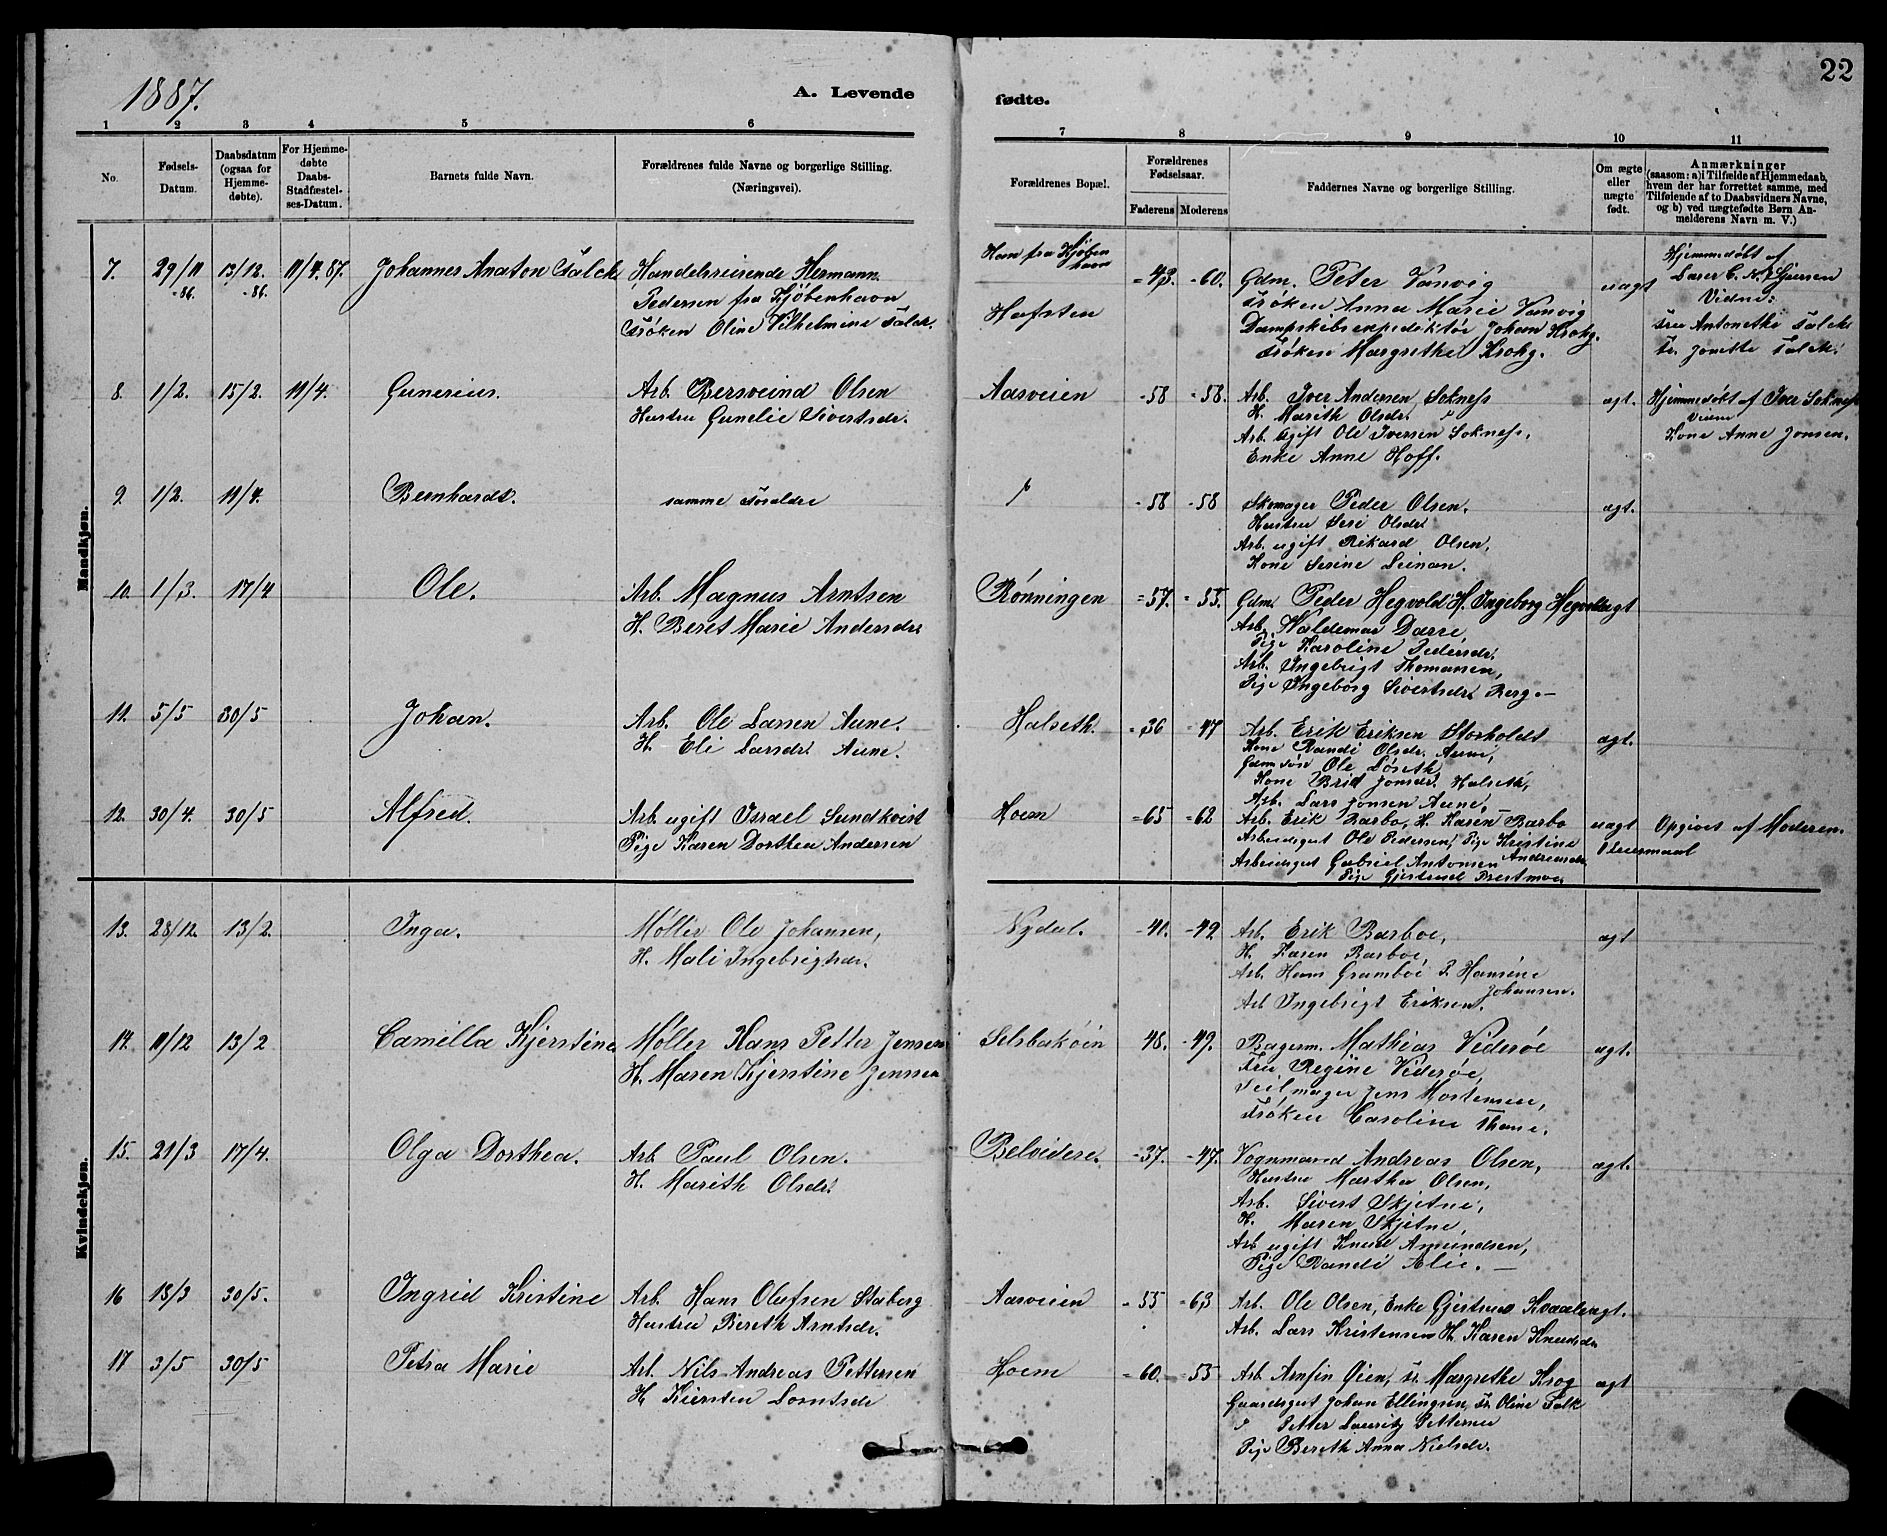 1887.
A. Levende
fødte.
22
1 2 3 4 5 6 7 8 9 10 11
No.
Fødsels-
Datum.
Daabsdatum
(ogsaa for
Hjemme-
døbte).
For Hjemme-
døbte
Daabs-
Stadfæstel-
ses-Datum.
Barnets fulde Navn.
Forældrenes fulde Navne og borgerlige Stilling.
(Næringsvei).
Forældrenes Bopæl.
Forældrenes
Fødselsaar.
Faderens Moderens
Faddernes Navne og borgerlige Stilling.
Om ægte
eller
uægte
født.
Anmærkninger
(saasom: a) i Tilfælde af Hjemmedaab,
hvem der har forrettet samme, med
Tilføiende af to Daabsvidners Navne,
og b) ved uægtefødte Børn An-
melderens Navn m. V.)
Mandkjøn.
7. 29/11 -86. 13/12 -86. 11/4. 87. Johannes Anaton Falck
Handelsreisende Hermann
Pedersen fra Kjøbenhavn
Frøken Oline Vilhelmine Falck.
Ham fra Kjøben
havn
Hafsten
=43. -60.
Gdm. Peter Vanvig
Frøken Anna Marie Vanvig
Dampskibsexpeditør Johan Krohg.
Frøken Margrethe Krohg.
uægt
Hjemmedøbt af
Lærer
Vidne:
Fru Antonethe Falck
Fr. Falck.
8. 1/2. 15/2. 11/4. Gunerius.
Arb. Bersveind Olsen
Hustru Gunelie Sivertsdr.
Aasveien
=58 -58.
Arb. Iver Andersen Sokness
H. Marith Olsdr.
Arb. ugift Ole Iversen Sokness,
Enke Anne Hoff.
ægt.
Hjemmedøbt af Iver Sokness
Vidne
Kone Anne Jonsen.
9 1/2. 11/4. Bernhardt.
samme Forældre
-58 -58
Skomager Peder Olsen,
Hustru Seri Olsdr.
Arb. ugift Rikard Olsen,
Kone Serine Leinan.
ægt.
10. 1/3. 17/4 Ole.
Arb. Magnus Arntsen
H. Beret Marie Andersdr.
Rønningen
=57. -55.
Gdm. Peder Hegvold H. Ingeborg Hegvold
Arb. Valdemar Darre,
Pige Karoline Pedersdr.
Arb. Ingebrigt Thomassen,
Pige Ingeborg Sivertsdr. Berg.
ægt
11. 5/5 30/5 Johan.
Arb. Ole Larsen Aune.
H. Eli Larsdr. Aune.
Halseth.
=36 -47
Arb. Erik Eriksen Storholdt
Kone Randi Olsdr. Aune,
Ole Løseth
Kone Brit Jonsdr. Halseth,
Arb. Lars Jonsen Aune,
ægt.
12. 30/4. 30/5 Alfred.
Arb. ugift Israel Sundkvist
Pige Karen Dorthea Andersen
Hoem
=65 -62
Arb. Erik Barbo, H. Karen Barbo
Arbeidsgut Ole Pedersen, Pige Kristine
Andreasdr.
Arbeidsgut Gabriel Antonsen
Pige Gjertrud Prestmoe
uægt
Opgivet af Moderen.
Leiermaal
Kvindekjøn.
13. 28/12. 13/2. Inga.
Møller Ole Johansen,
H. Mali Ingebrigtsdr.
Nydal.
-40. -49
Arb. Erik Barboe,
H. Karen Barboe,
Arb. Hans Gramboe P. Hansine
Johansen.
Arb Ingebrigt Eriksen.
ægt
14. 11/12 13/2 Camilla Kjerstine
Møller Hans Petter Jensen
H. Maren Kjerstine Jenssen
Selsbakøien
48. -49.
Bagerm. Mathias Viderøe
Fru Regine Viderøe,
Seilmager Jens Mortensen,
Frøken Caroline Thane.
ægt.
15. 21/3 17/4. Olga Dorthea.
Arb. Paul Olsen.
H. Marith Olsdr.
Belvidere.
=37. -47.
Vognmand Andreas Olsen,
Hustru Martha Olsen,
Arb. Sivert Skjetne,
H. Maren Skjetne,
Arb ugift Knud Amundsen,
Pige Randi Alie.
ægt.
16 18/3 30/5. Ingrid Kristine
Arb. Hans Olufsen Staberg
Hustru Bereth Arntsdr.
Aasveien
=55 =63
Arb. Ole Olsen, Enke Gjertrud Kvaale
Arb. Lars Kristensen H. Karen Knudsdr
ægt.
17 3/5 30/5 Petra Marie
Arb. Nils Andreas Pettersen
H Kiersten Lorntsdr
Hoem
=60. -55
Arb Arnfin Øien, Fr. Margrethe Krog
Gaardsgut Johan Ellingsen, Fr. Oline Falk
Petter Lauritz Petternu
Pige Bereth Anna Nielsdr.
ægt